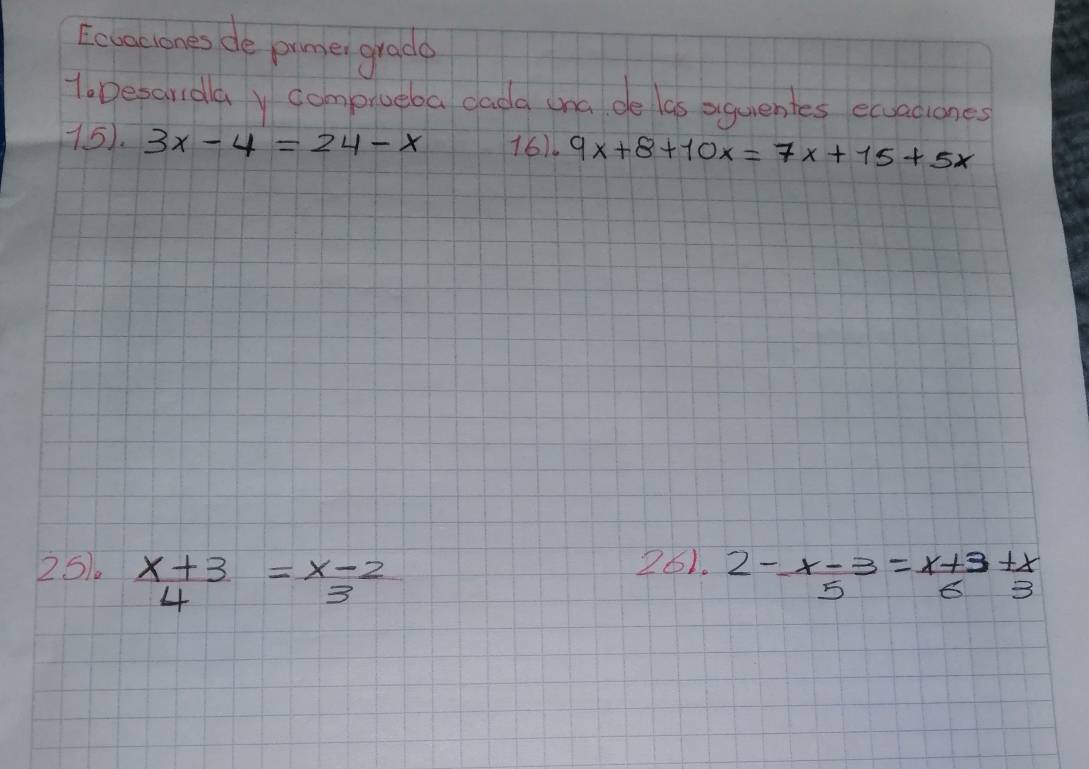 Ecuaciones de primer grado
1. Desarrolla y comprueba cada una de las siguientes ecuaciones
15). 3x - 4 = 24 - x 16). 9x + 8 + 10x = 7x + 15 + 5x
25). x + 3 = x - 2 26). 2 - x - 3 = x + 3 + x
4 3 5 6 3